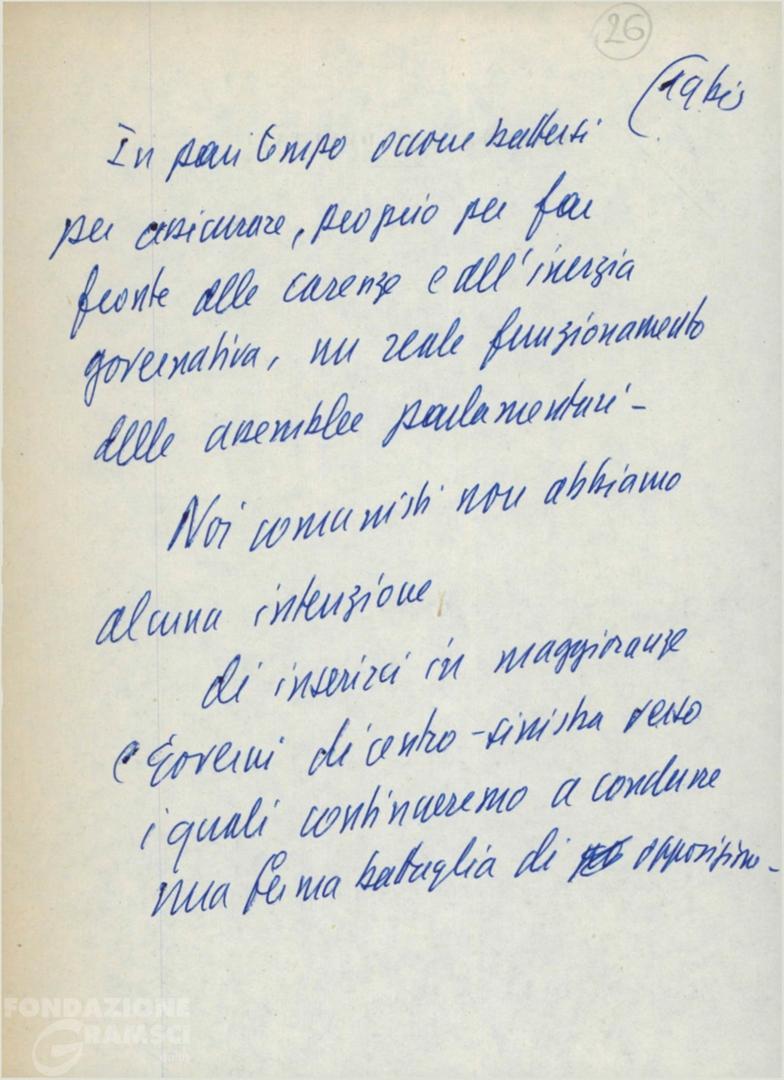 26
(19 bis
In pari tempo occorre battersi
per assicurare, proprio per far
fronte alle carenze e all'inerzia
governativa, un reale funzionamento
delle assemblee parlamentari -
Noi comunisti non abbiamo
alcuna intenzione
di inserirci in maggioranze
e Governi di centro-sinistra verso
i quali continueremo a condurre
una ferma battaglia di opposizione -
FONDAZIONE
GRAMSCI